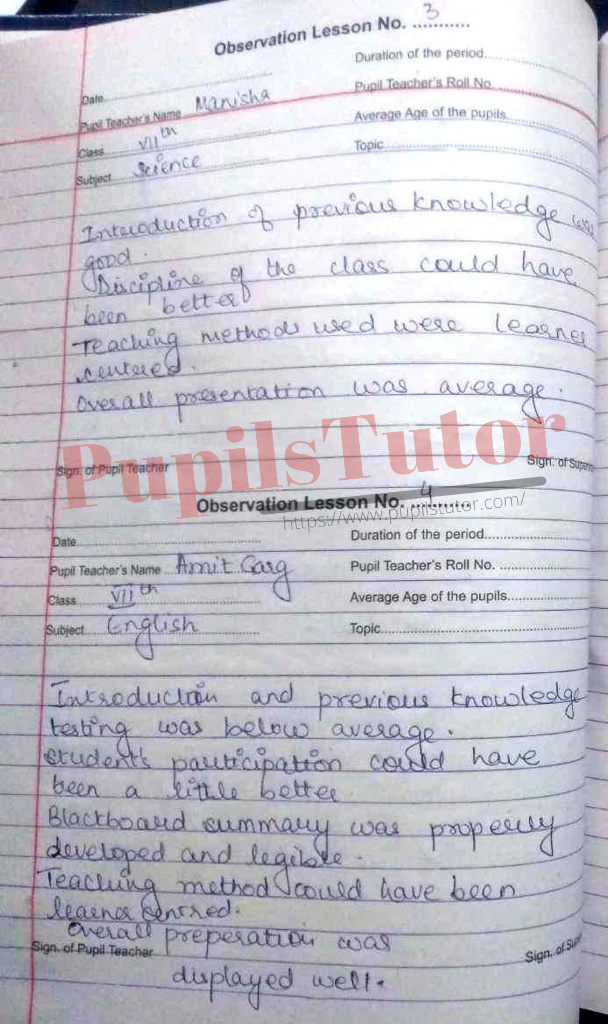 Observation Lesson No. 3
Date
Duration of the period
Pupil Teacher's Name Manisha
Pupil Teacher's Roll No.
Class VII th
Average Age of the pupils
Subject Science
Topic
Introduction of previous knowledge was
good.
Discipline of the class could have
been better
Teaching methods used were learner
centered.
Overall presentation was average.
PupilsTutor
Sign. of Pupil Teacher
Sign. of Superv
Observation Lesson No. 4
https://www.pupilstutor.com/
Date
Duration of the period
Pupil Teacher's Name Amit Garg
Pupil Teacher's Roll No.
Class VII th
Average Age of the pupils
Subject English
Topic
Introduction and previous knowledge
testing was below average.
Student's participation could have
been a little better
Blackboard summary was properly
developed and legible.
Teaching method could have been
learner centred.
Overall preperation was
Sign. of Pupil Teacher
Sign. of Sup
displayed well.